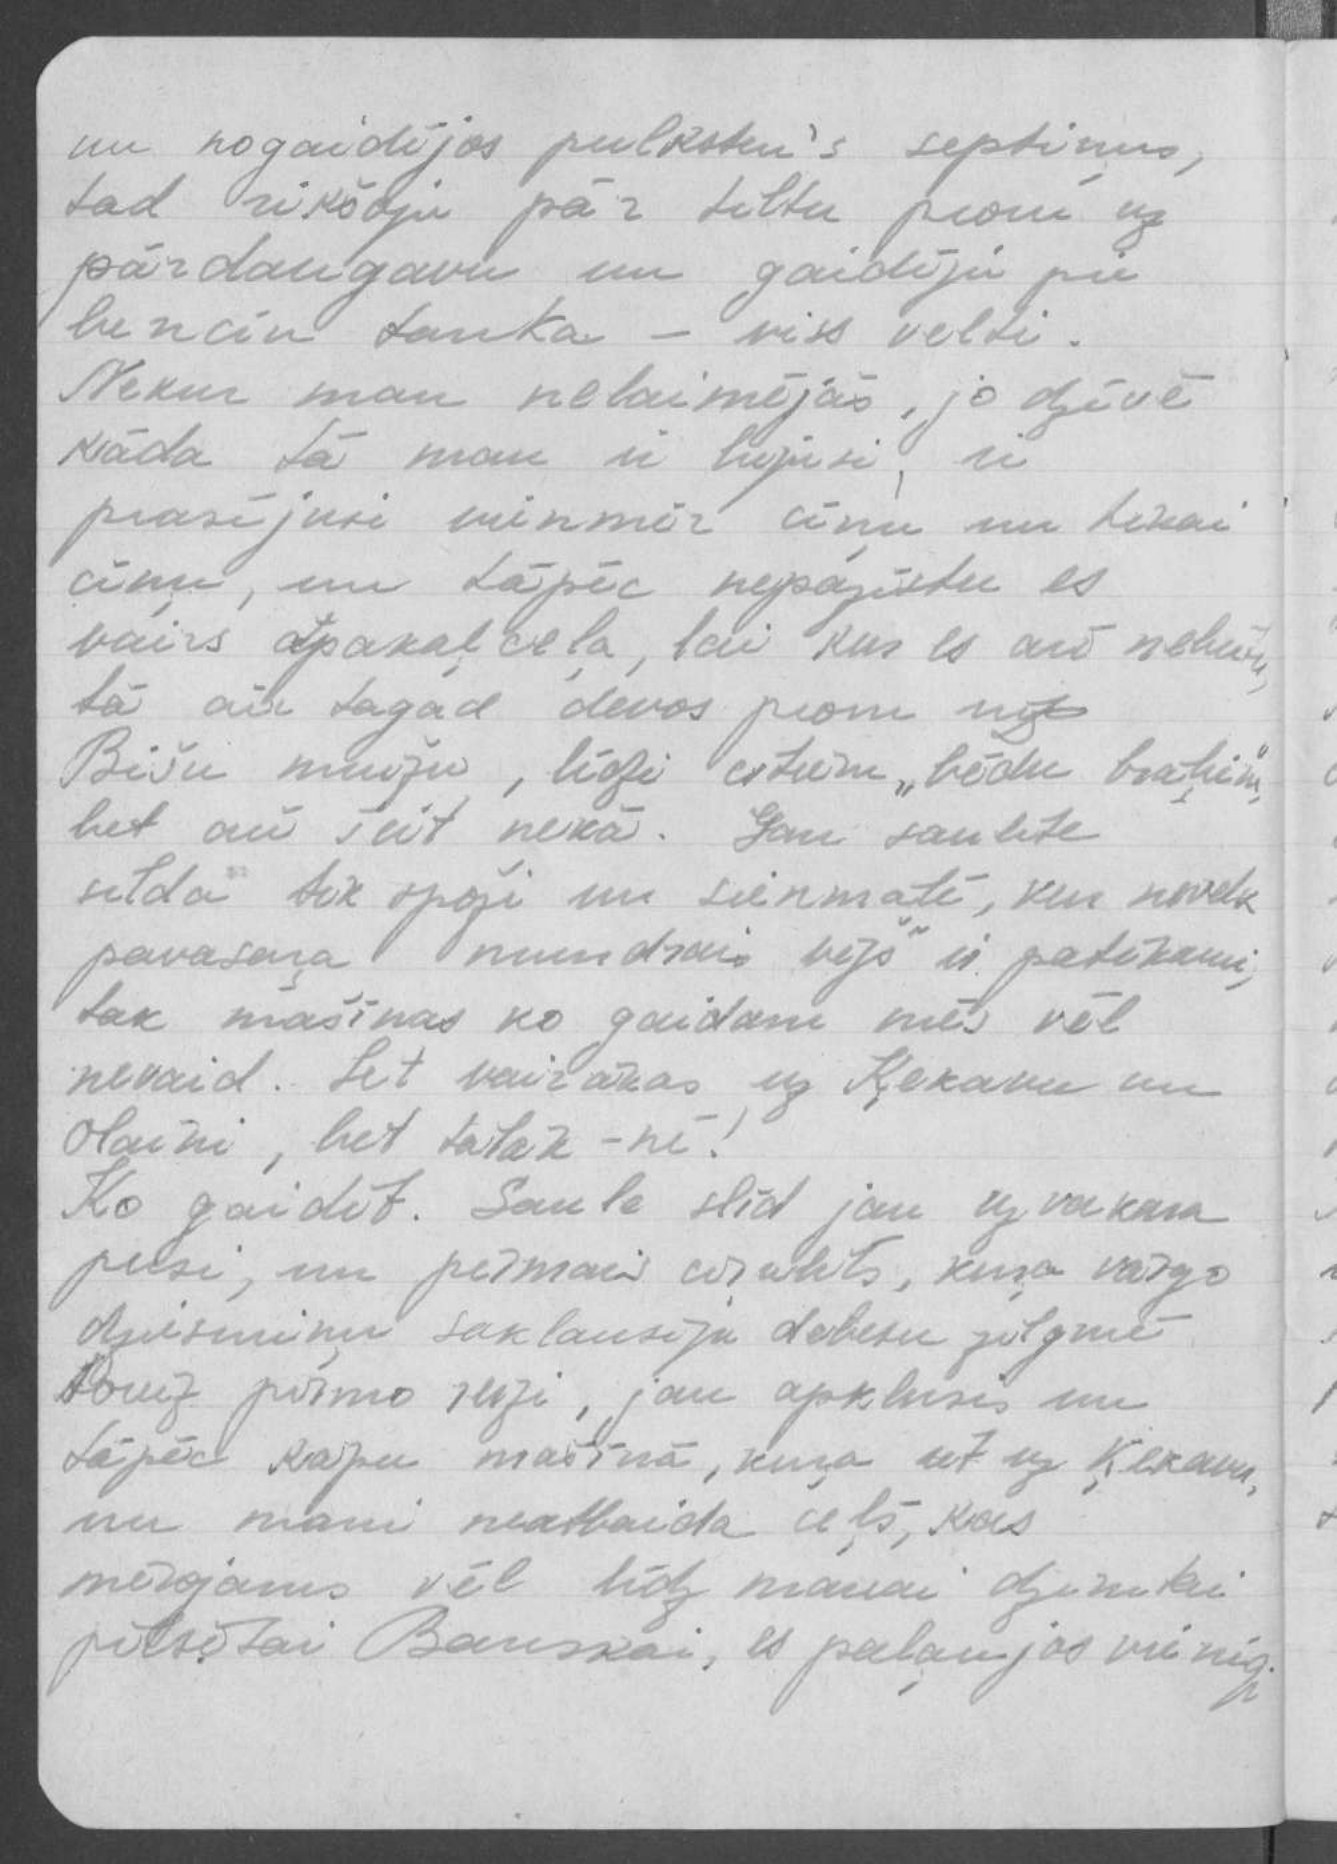 un nogaidījos pulksten's septiņus,
tad rikšoju pār tiltu prom uz
pārdaugavu un gaidīju pie
bencin tanka – viss velti.
Nekur man nelaimējās, jo dzīvē
kāda tā man ir bijusi, ir
prasījusi vienmēr cīņu un tikai
cīņu, un tāpēc nepazīstu es
vairs atpakaļ ceļa, lai kur es arī nebūtu,
tā arī tagad devos prom uz
Bišu muižu, līdzi citiem „bēdu brāļiem",
bet arī šeit nekā. Gan saulīte
silda tik spoži un sienmalē, kur nevelk
pavasara mundrais vējš" ir patīkami,
tak mašīnas ko gaidam mēs vēl
nevaid. Iet vairākas uz Ķekavu un
Olaini, bet tālāk – nē!
Ko gaidīt. Saule slīd jau uz vakara
pusi, un pirmais cīrulīts, kuŗa vārgo
dziesmiņu saklausīju debesu zilgmē
šoreiz pirmo reizi, jau apklusis un
tāpēc kāpu mašīnā, kuŗa iet uz Ķekavu,
un mani neatbaida ceļš, kas
mērojams vēl līdz manai dzimtai
pilsētai Bauskai, es paļaujos vienīgi